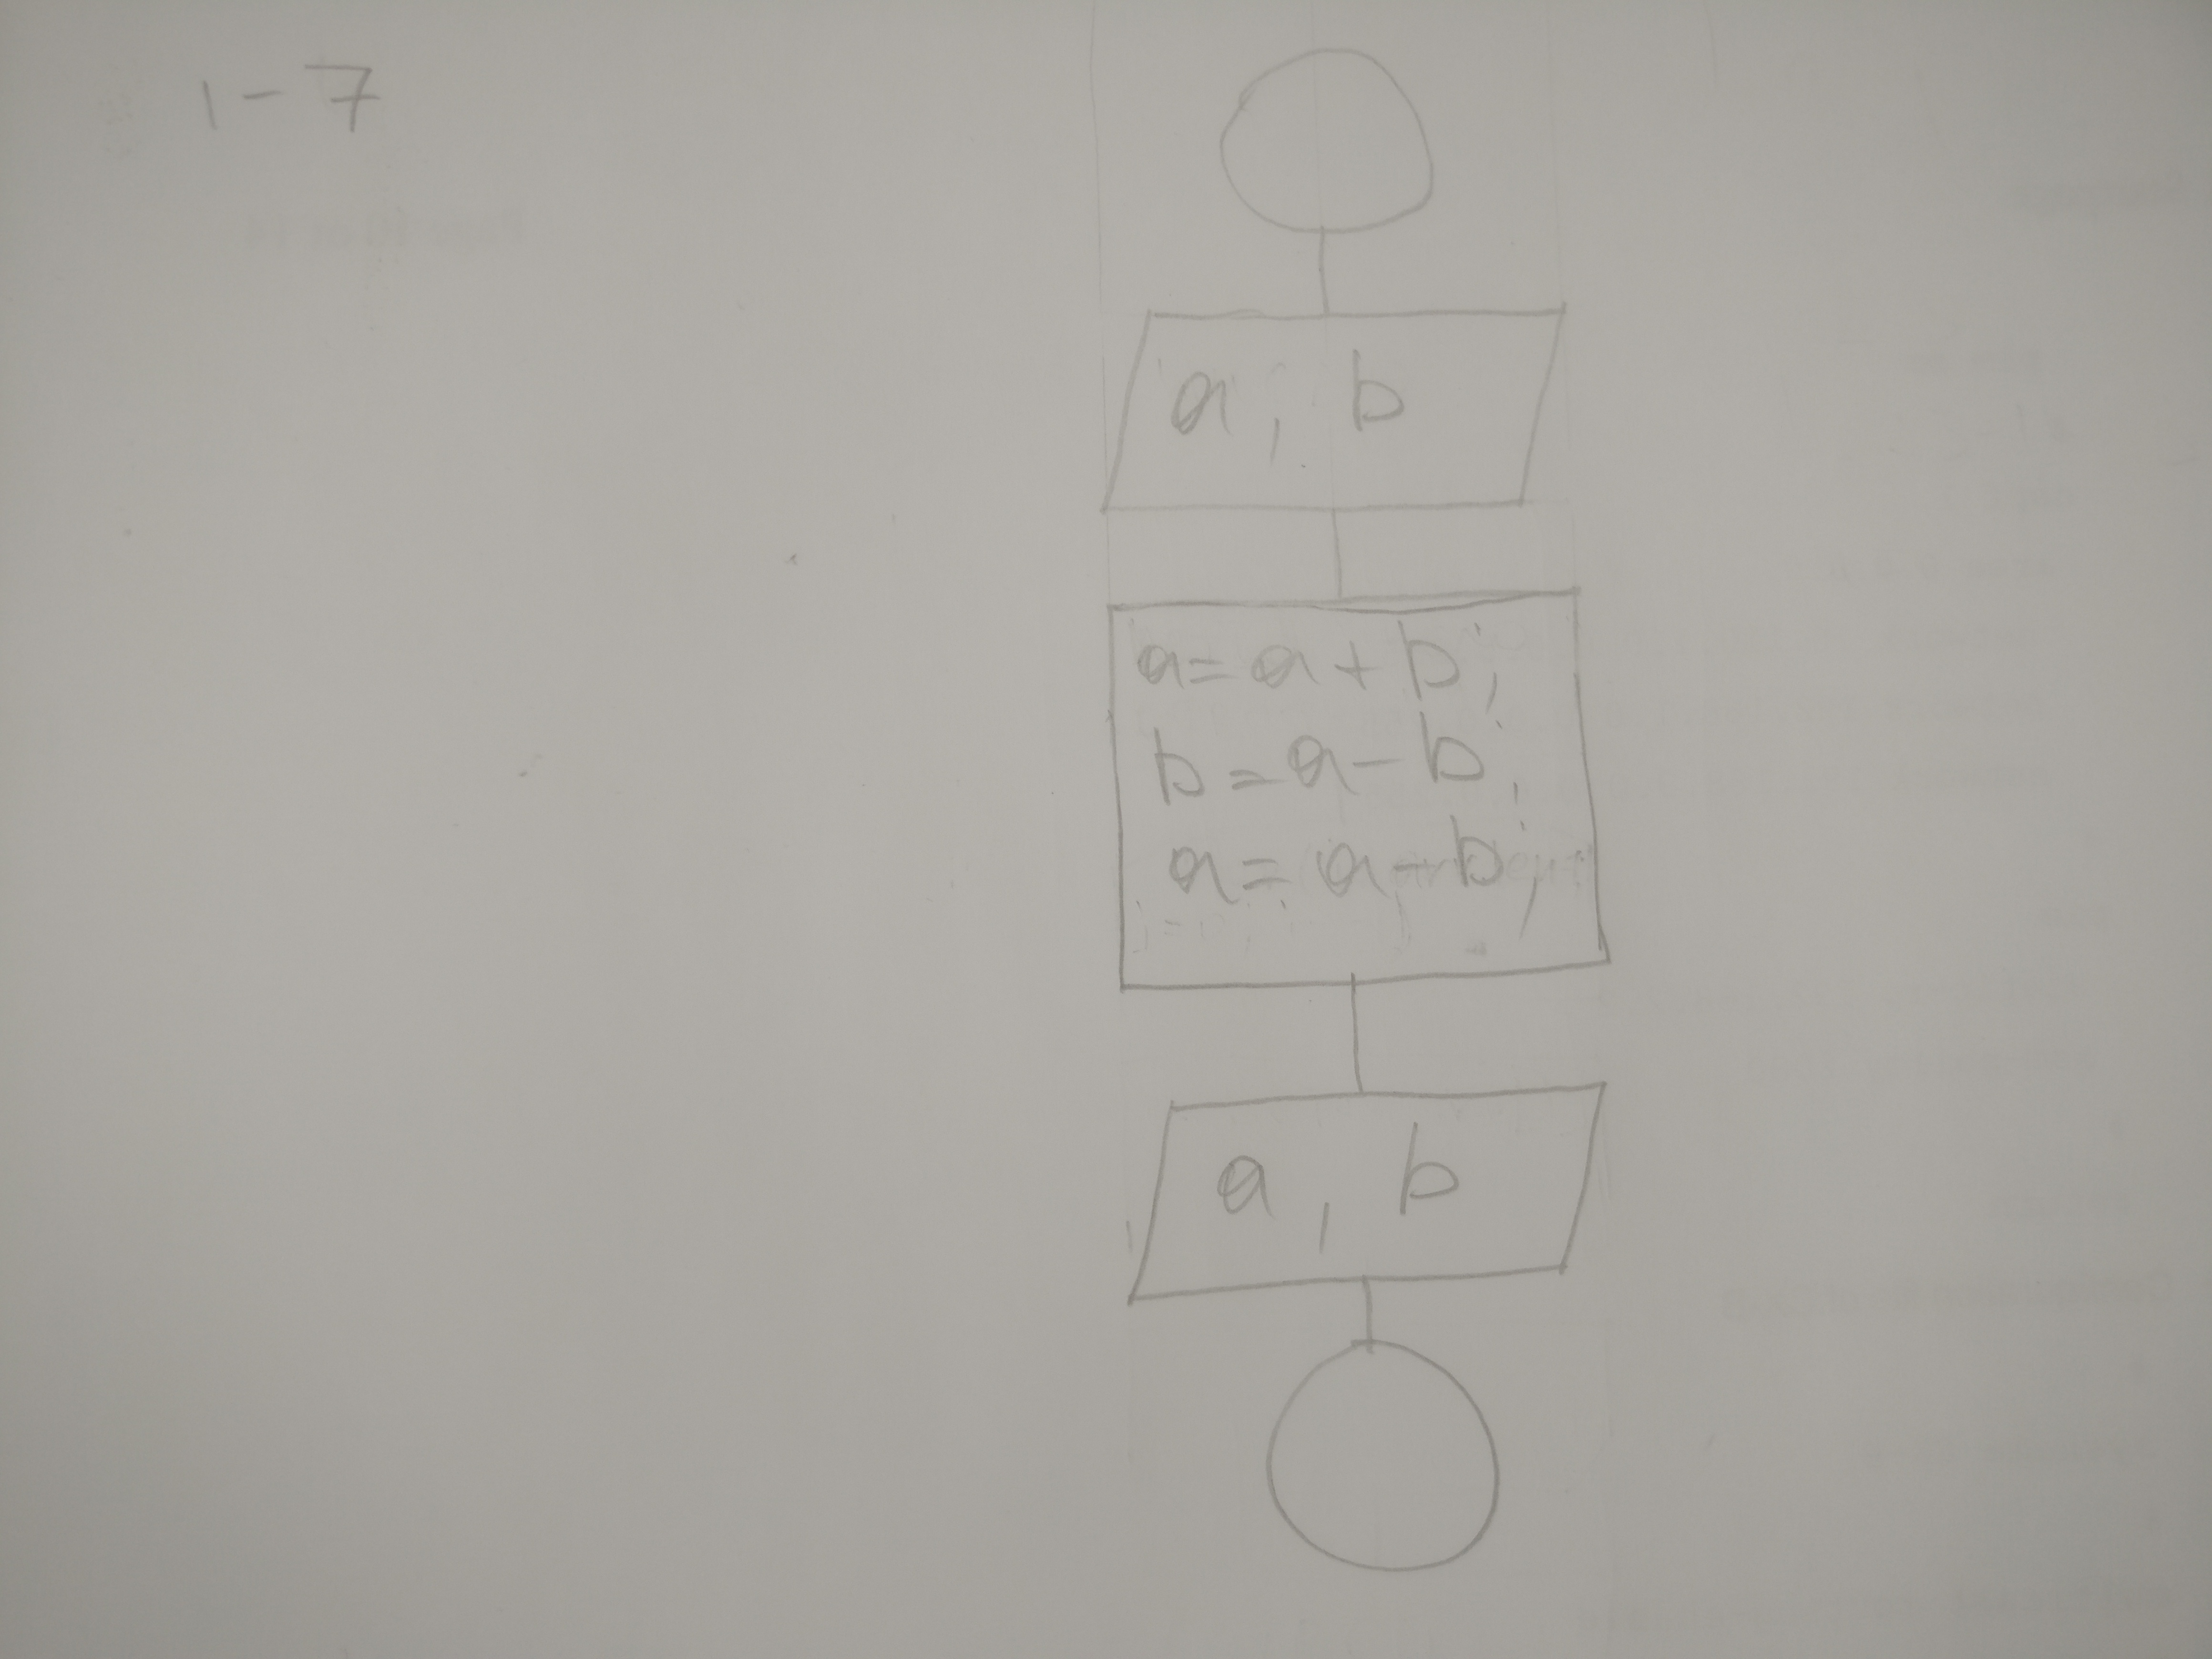 1-7
a, b
a=a+b;
b=a-b;
a=a-b;
a, b